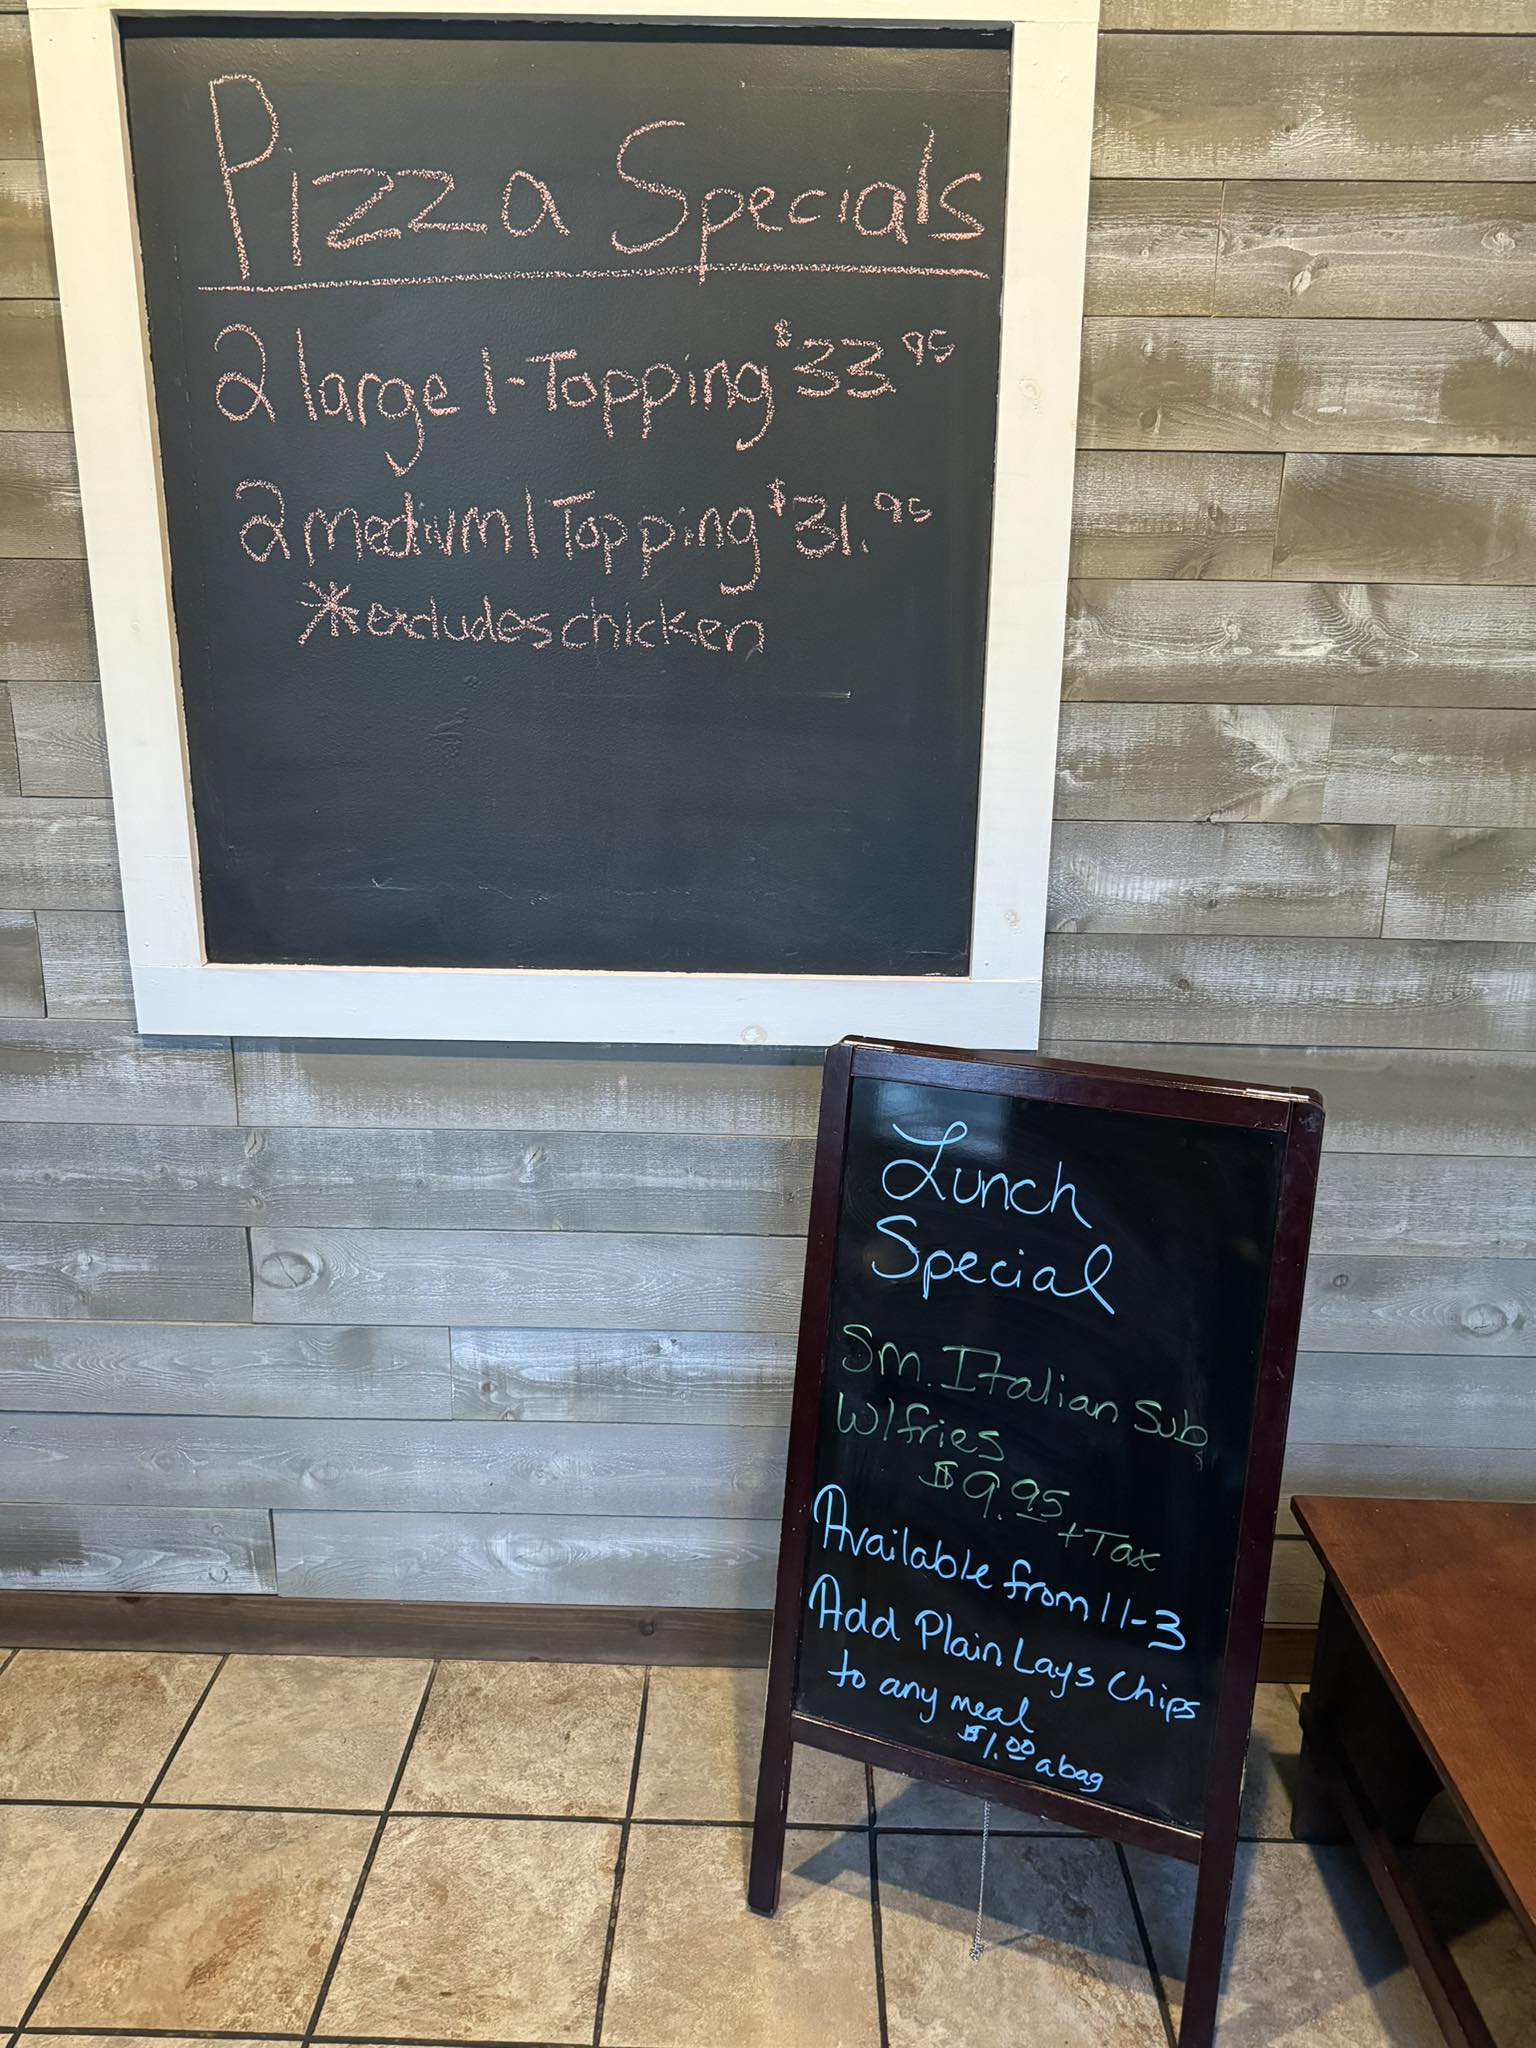 Pizza Specials
2 large 1-Topping $33.95
2 medium 1 Topping $31.95
*excludes chicken
Lunch
Special
Sm. Italian Sub
W/fries
$9.95 + Tax
Available from 11-3
Add Plain Lays Chips
to any meal
$1.00 a bag